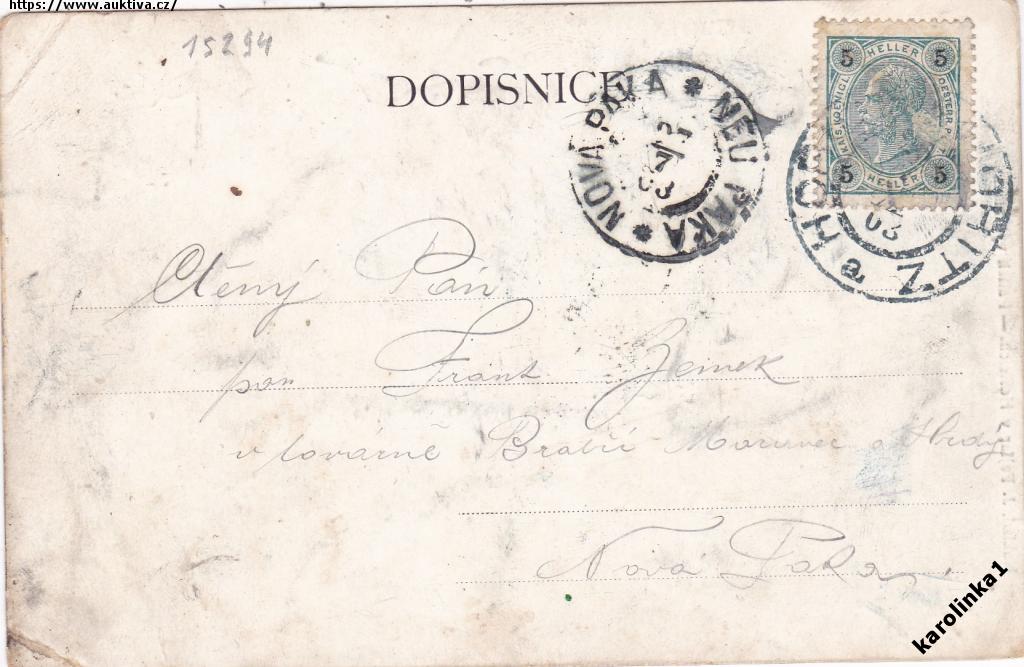 https://www.auktiva.cz/
15294
DOPISNICE
NOVÁ PAKA * NEU PAKA *
7
03
5 HELLER 5
KAIS. KOENIGL. OESTERR. P
5 HELLER 5
HO HORITZ
03
a
Ctěný Pán
pan Frant
v továrně Bratří a
Nová Paka
karolinka1